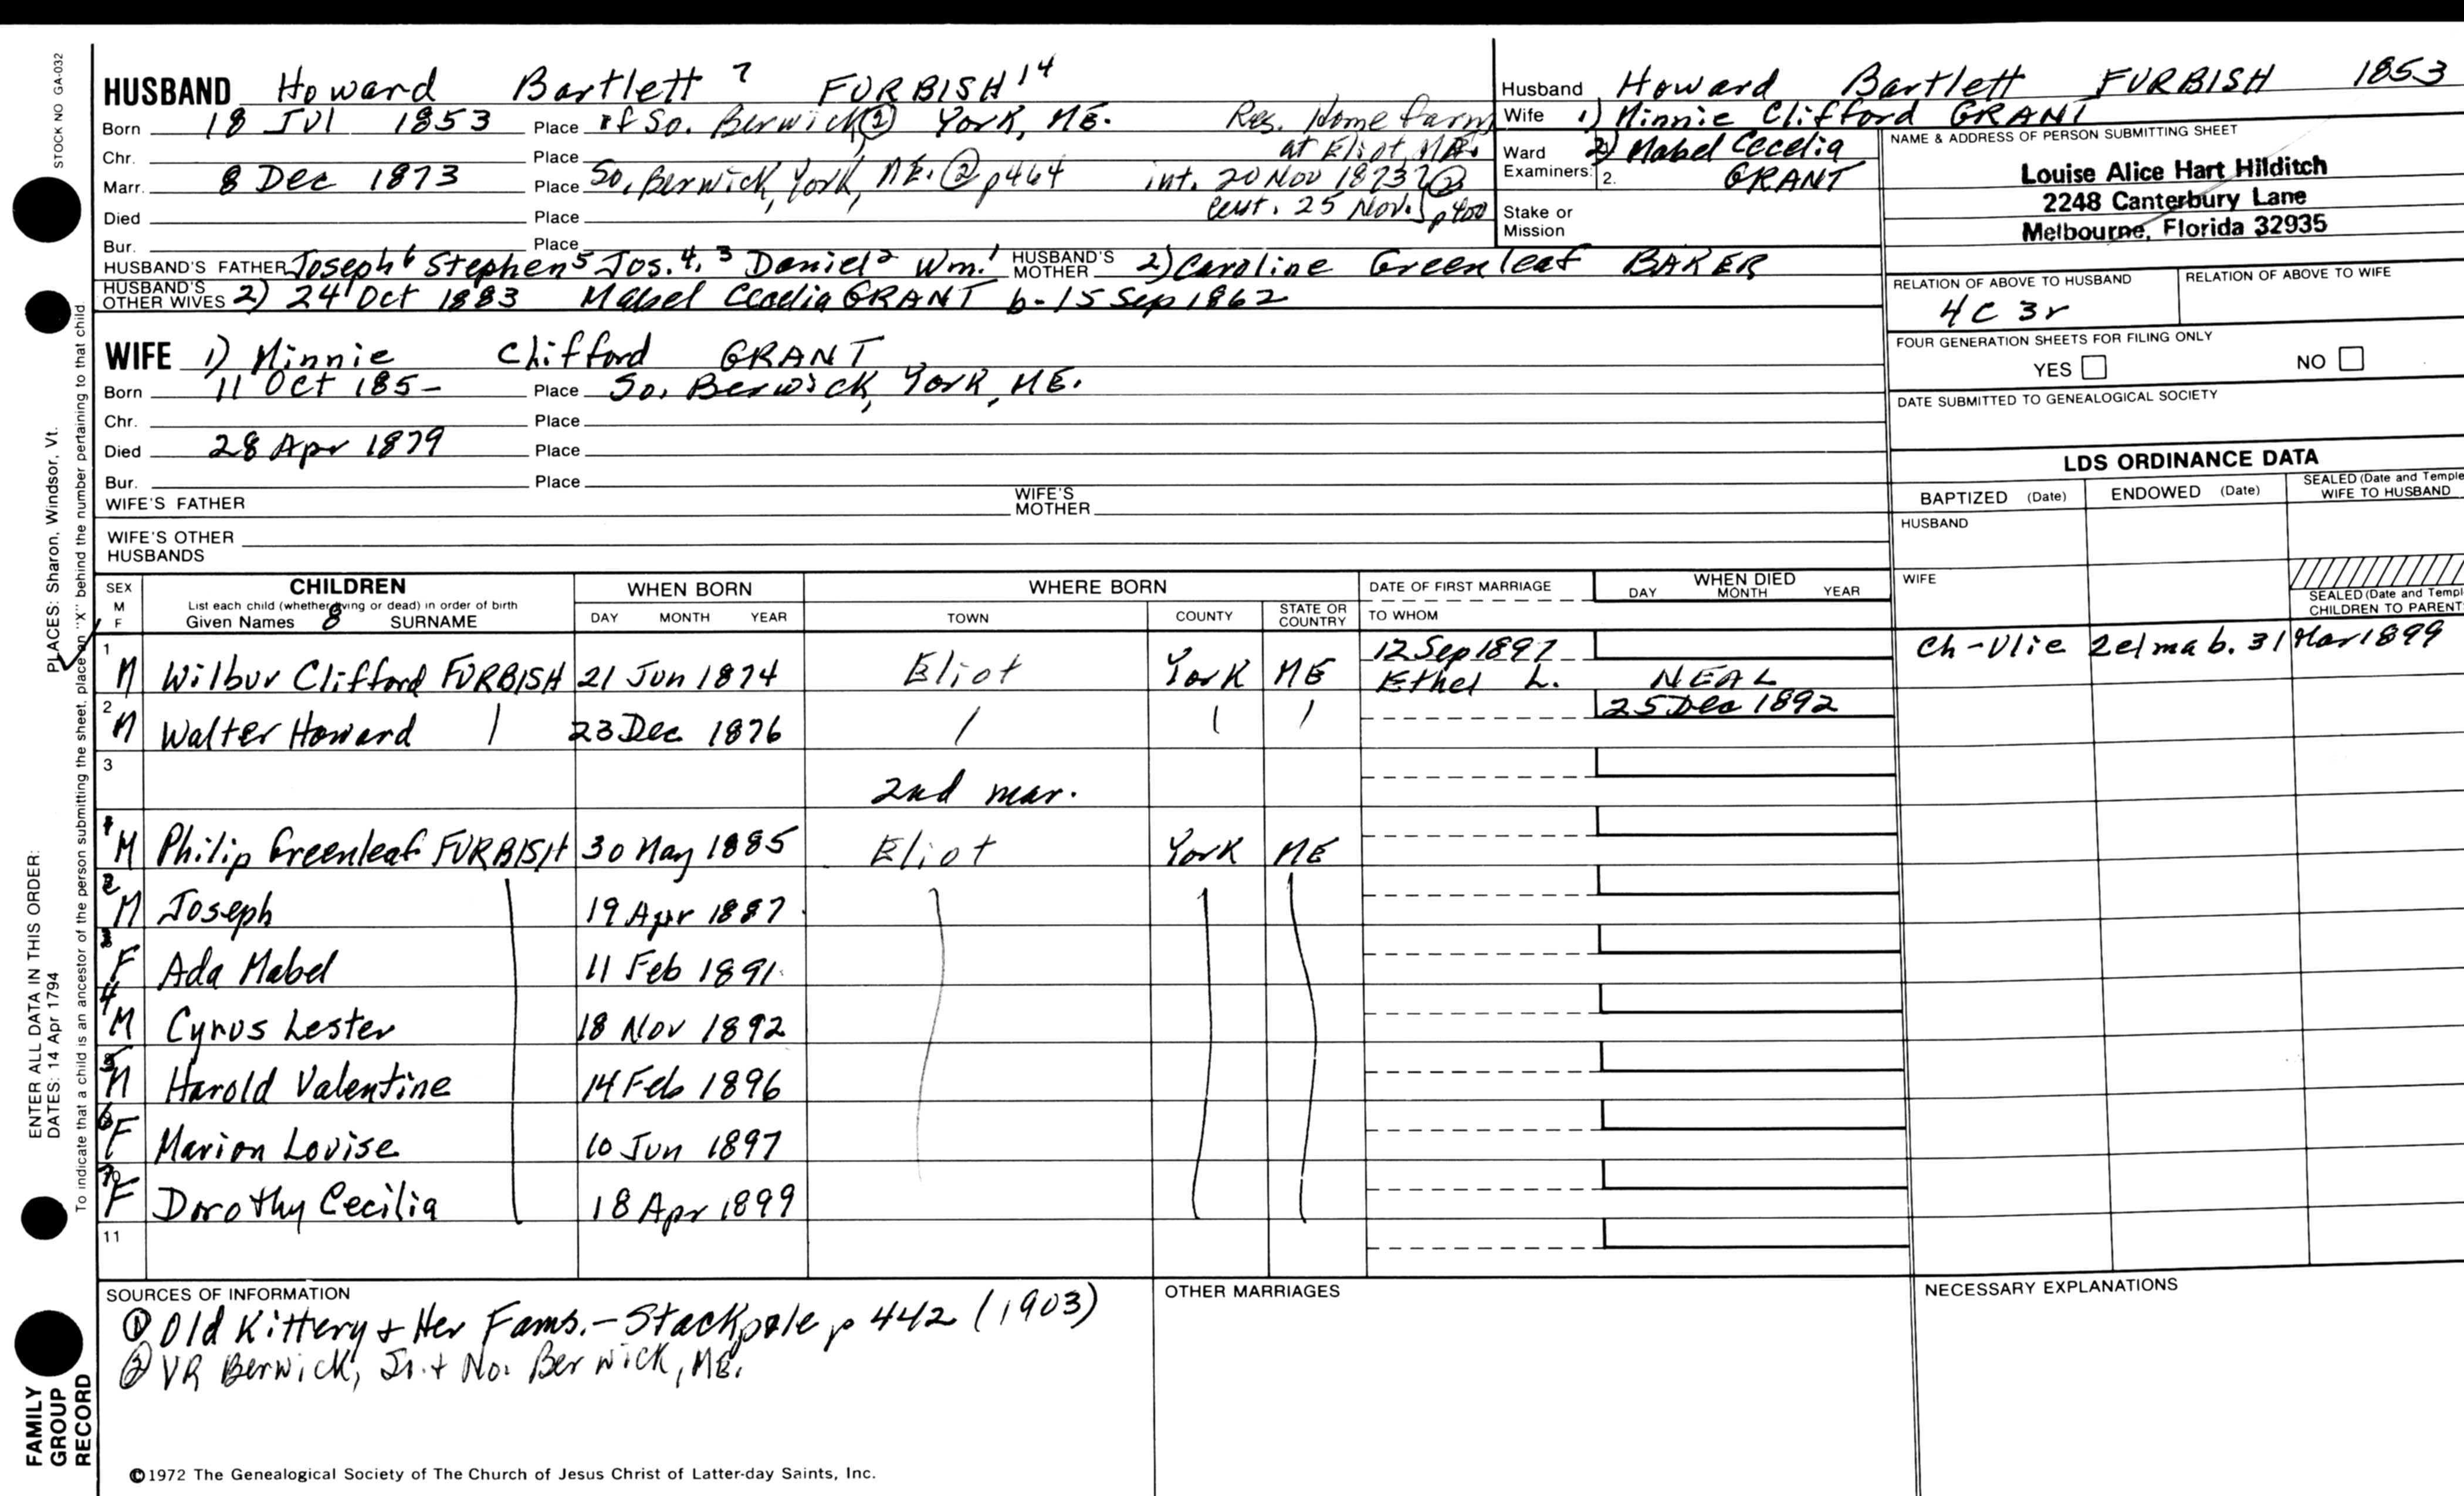 STOCK NO GA-032
HUSBAND Howard Bartlett 7 FURBISH 14
Born 18 Jul 1853 Place of So. Berwick ① York, ME. Res. Home farm
Chr. Place at Eliot, ME.
Marr. 8 Dec 1873 Place So. Berwick, York, ME. ② p464 int. 20 Nov 1873 ②
Died Place cert. 25 Nov. p400
Bur. Place
HUSBAND'S FATHER Joseph6 Stephen5 Jos.4,3 Daniel2 Wm.1 HUSBAND'S MOTHER 2) Caroline Greenleaf BAKER
HUSBAND'S OTHER WIVES 2) 24 Oct 1883 Mabel Cecelia GRANT b- 15 Sep 1862
WIFE 1) Minnie Clifford GRANT
Born 11 Oct 185- Place So. Berwick, York, ME.
Chr. Place
Died 28 Apr 1879 Place
Bur. Place
WIFE'S FATHER WIFE'S MOTHER
WIFE'S OTHER HUSBANDS
Husband Howard Bartlett FURBISH 1853
Wife 1) Minnie Clifford GRANT
Ward 2) Mabel Cecelia
Examiners: 2. GRANT
Stake or Mission
NAME & ADDRESS OF PERSON SUBMITTING SHEET
Louise Alice Hart Hilditch
2248 Canterbury Lane
Melbourne, Florida 32935
RELATION OF ABOVE TO HUSBAND RELATION OF ABOVE TO WIFE
4C 3r
FOUR GENERATION SHEETS FOR FILING ONLY
YES NO
DATE SUBMITTED TO GENEALOGICAL SOCIETY
LDS ORDINANCE DATA
BAPTIZED (Date) ENDOWED (Date) SEALED (Date and Temple WIFE TO HUSBAND
HUSBAND
WIFE
SEALED (Date and Templ
CHILDREN TO PARENT
SEX M F CHILDREN WHEN BORN WHERE BORN DATE OF FIRST MARRIAGE WHEN DIED
List each child (whether living or dead) in order of birth
Given Names 8 SURNAME DAY MONTH YEAR TOWN COUNTY STATE OR COUNTRY TO WHOM DAY MONTH YEAR
1 M Wilbur Clifford FURBISH 21 Jun 1874 Eliot York ME 12 Sep 1897 Ethel L. NEAL Ch-Ulie Zelma b. 31 Mar 1899
2 M Walter Howard 23 Dec 1876 25 Dec 1892
3 2nd mar.
1 M Philip Greenleaf FURBISH 30 May 1885 Eliot York ME
2 M Joseph 19 Apr 1887
3 F Ada Mabel 11 Feb 1891
4 M Cyrus Lester 18 Nov 1892
5 M Harold Valentine 14 Feb 1896
6 F Marion Louise 10 Jun 1897
7 F Dorothy Cecilia 18 Apr 1899
11
SOURCES OF INFORMATION OTHER MARRIAGES NECESSARY EXPLANATIONS
① Old Kittery & Her Fams. - Stackpole p 442 (1903)
② VR Berwick, So. + No. Berwick, ME.
©1972 The Genealogical Society of The Church of Jesus Christ of Latter-day Saints, Inc.
ENTER ALL DATA IN THIS ORDER:
DATES: 14 Apr 1794 PLACES: Sharon, Windsor, Vt.
To indicate that a child is an ancestor of the person submitting the sheet, place an "X" behind the number pertaining to that child
FAMILY
GROUP
RECORD